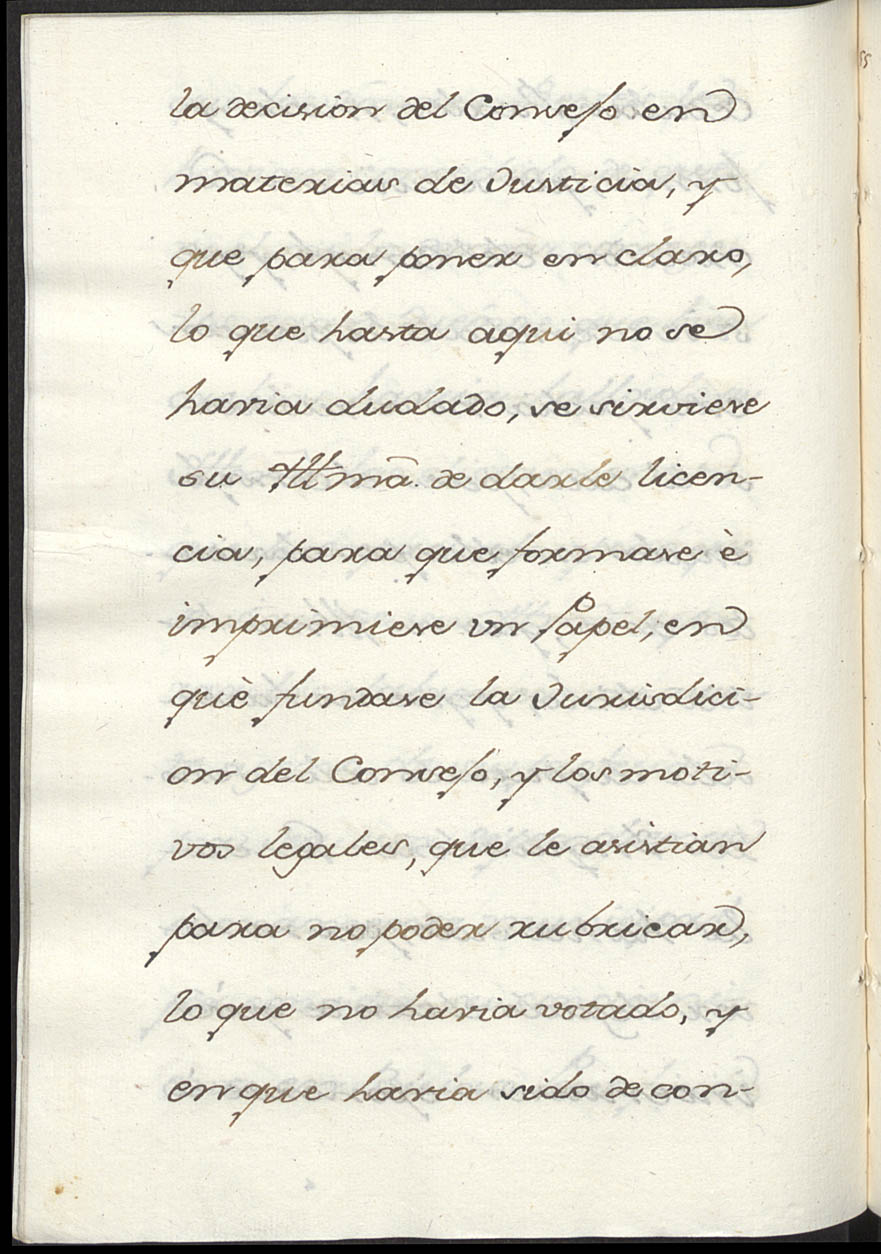 la decision del Consejo en
materias de Justicia, y
que para poner en claro,
lo que hasta aqui no se
havia dudado, se sirviese
su Illmā. de darle licen-
cia, para que formase è
imprimiese vn Papel, en
què fundase la Jurisdici-
on del Consejo, y los moti-
vos legales, que le asistian
para no poder rubricar,
lo que no havia votado, y
en que havia sido de con-